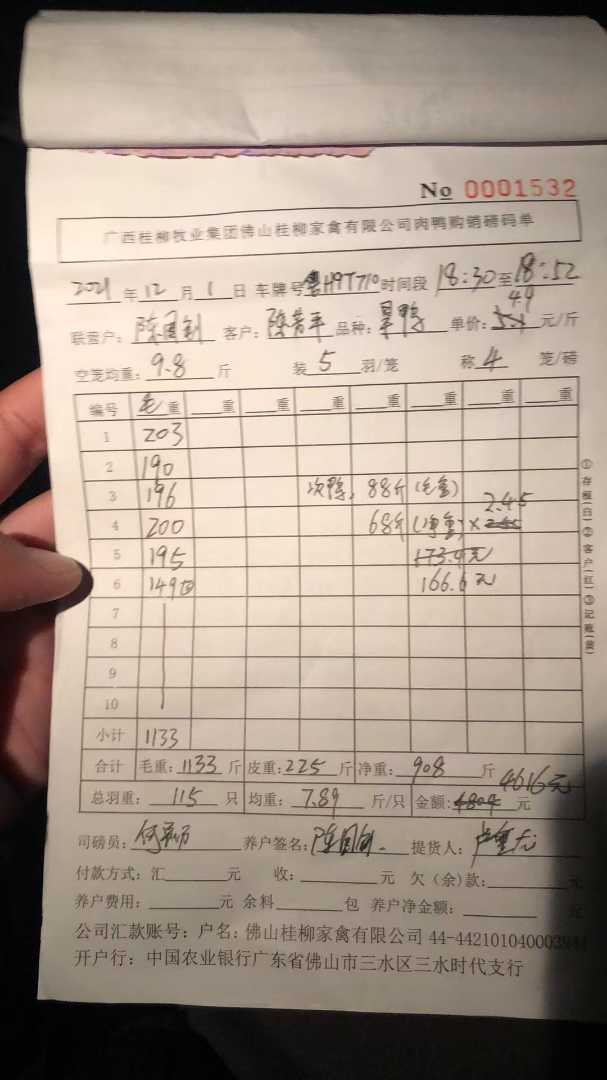 No 0001532
广西桂柳牧业集团佛山桂柳家禽有限公司肉鸭购销磅码单
2021 年 12 月 1 日 车牌号 粤H9T710 时间段 18:30 至 18:52
4.9
联营户: 陈国钊 客户: 陈 平 品种: 鸭 单价: 5.1 元/斤
空笼均重: 9.8 斤 装 5 羽/笼 称 4 笼/磅
编号 毛重 重 重 重 重 重 重 重
1 203
2 190
3 196 次鸭: 88斤 (毛重)
2.45
4 200 68斤 (净重) ×
5 195 173.4元
6 149 166.6元
7
8
9
10
小计 1133
合计 毛重: 1133 斤 皮重: 225 斤 净重: 908 斤
4616元
总羽重: 115 只 均重: 7.89 斤/只 金额: 4804 元
司磅员: 养户签名: 陈国钊 提货人:
付款方式: 汇 元 收: 元 欠(余)款: 元
养户费用: 元 余料 包 养户净金额: 元
公司汇款账号: 户名: 佛山桂柳家禽有限公司 44-442101040003
开户行: 中国农业银行广东省佛山市三水区三水时代支行
①存根(白)②客户(红)③记账(黄)